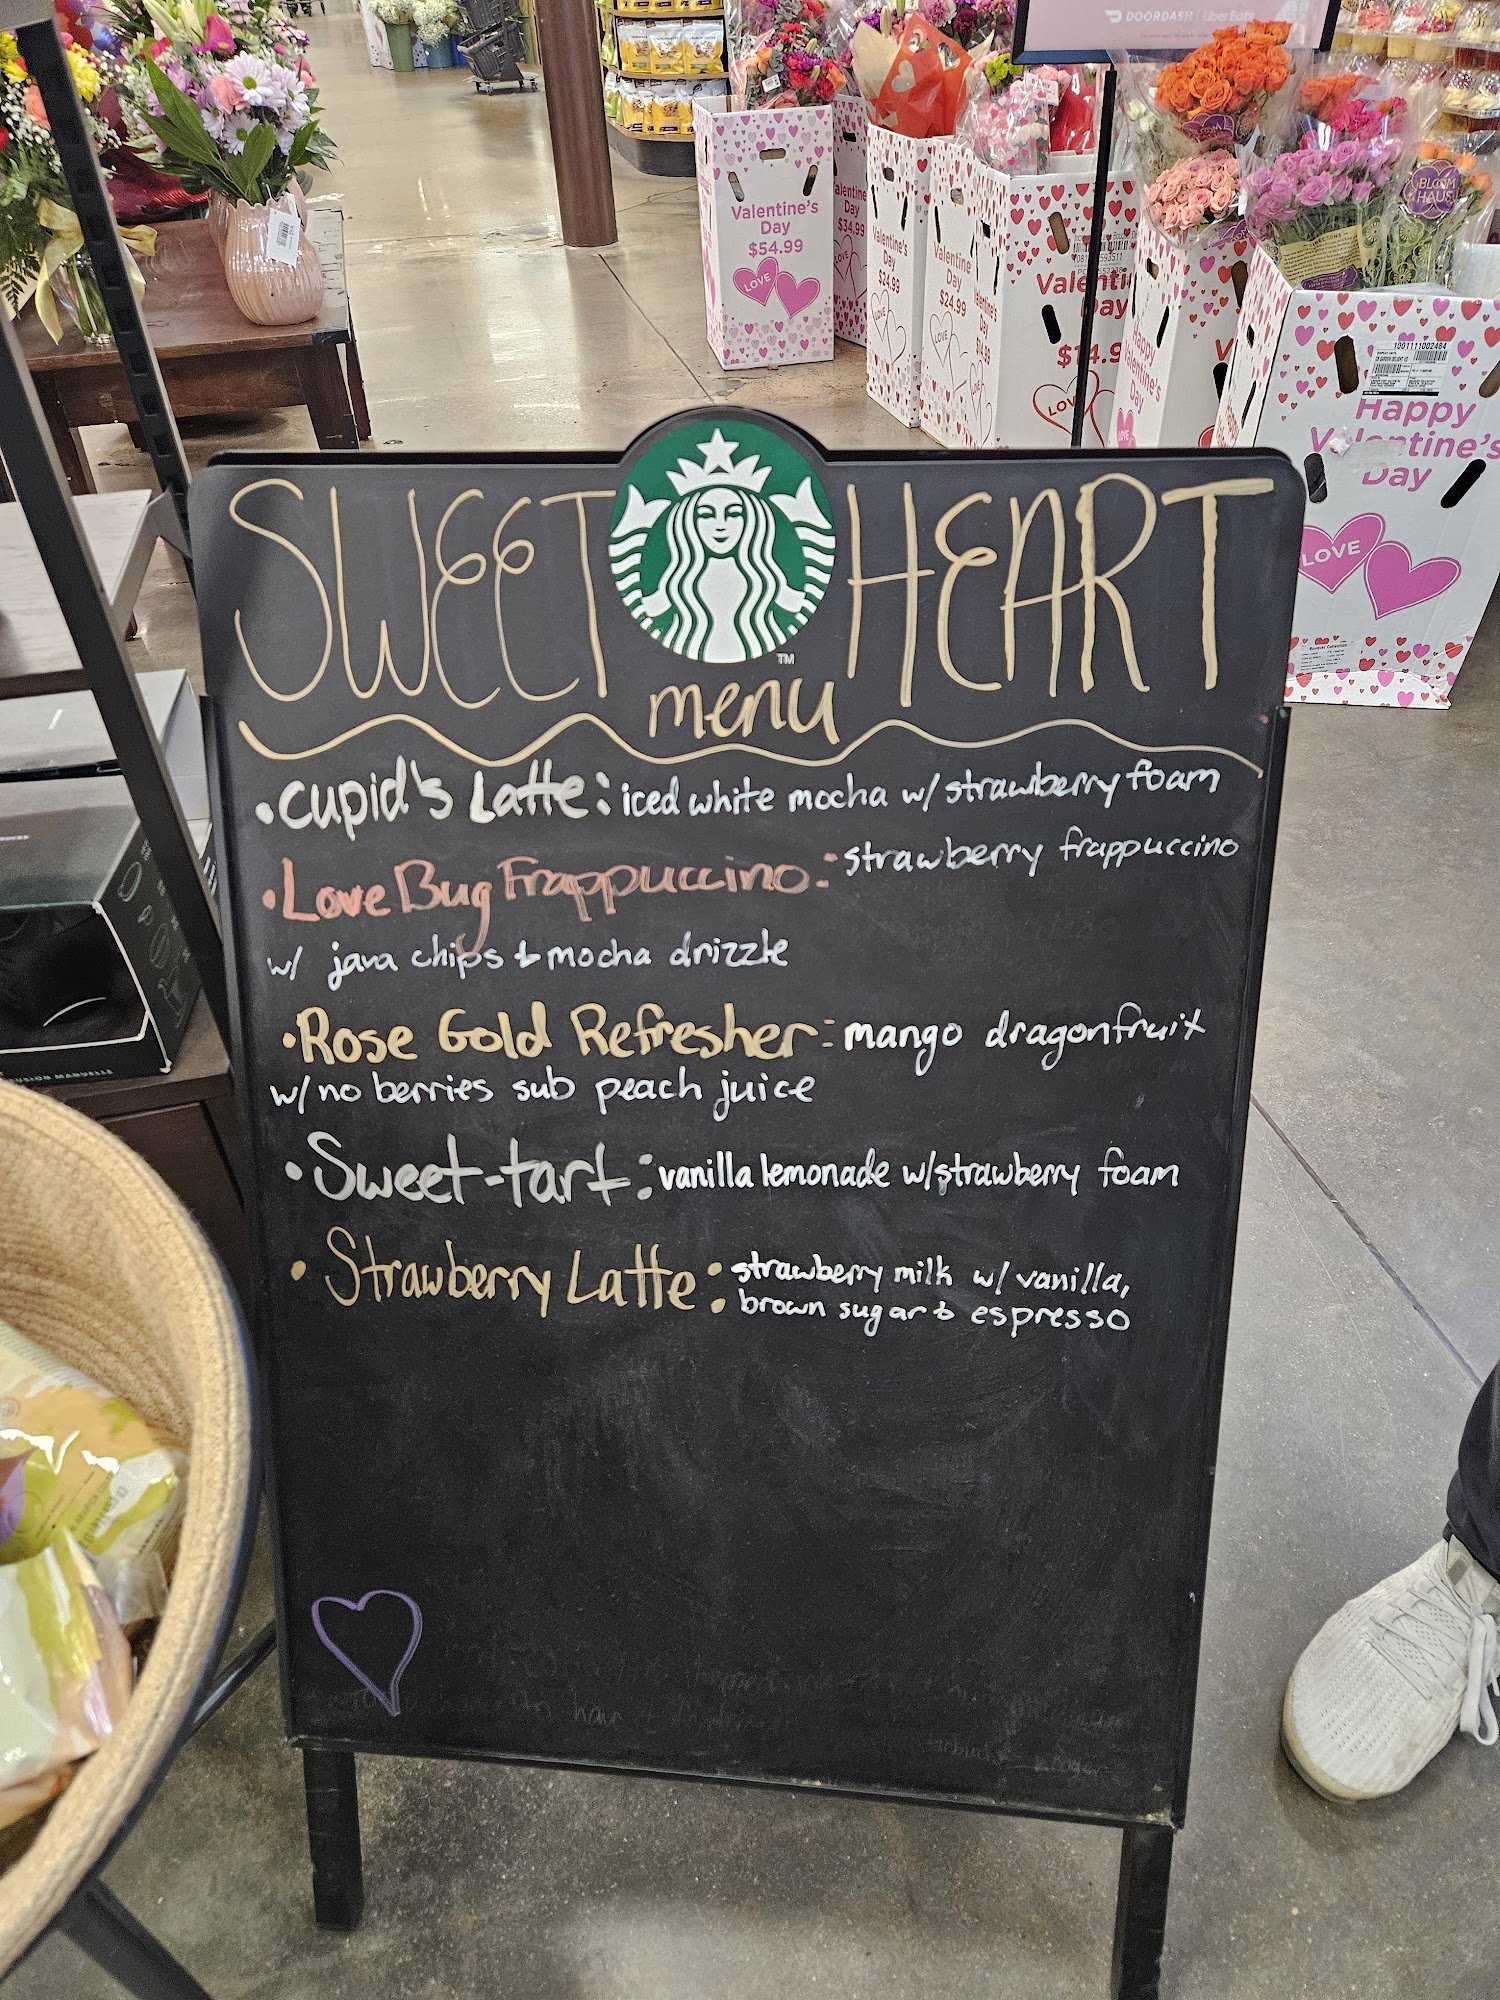 DOORDASH | Uber Eats
Valentine's
Day
$54.99
LOVE
Valentine
Day
$34.99
LOVE
Valentine's
Day
$24.99
LOVE
Valentine
Day
$24.99
LOVE
Valenti
Day
$14.9
LOVE
Happy
Valentine's
Day
LOVE
BLOOM
HAUS
1091111002484
Happy
Valentine's
Day
LOVE
SWEET HEART
TM
menu
• Cupid's Latte: iced white mocha w/ strawberry foam
• Love Bug Frappuccino: strawberry frappuccino
w/ java chips & mocha drizzle
• Rose Gold Refresher: mango dragonfruit
w/ no berries sub peach juice
• Sweet-tart: vanilla lemonade w/ strawberry foam
• Strawberry Latte: strawberry milk w/ vanilla,
brown sugar & espresso